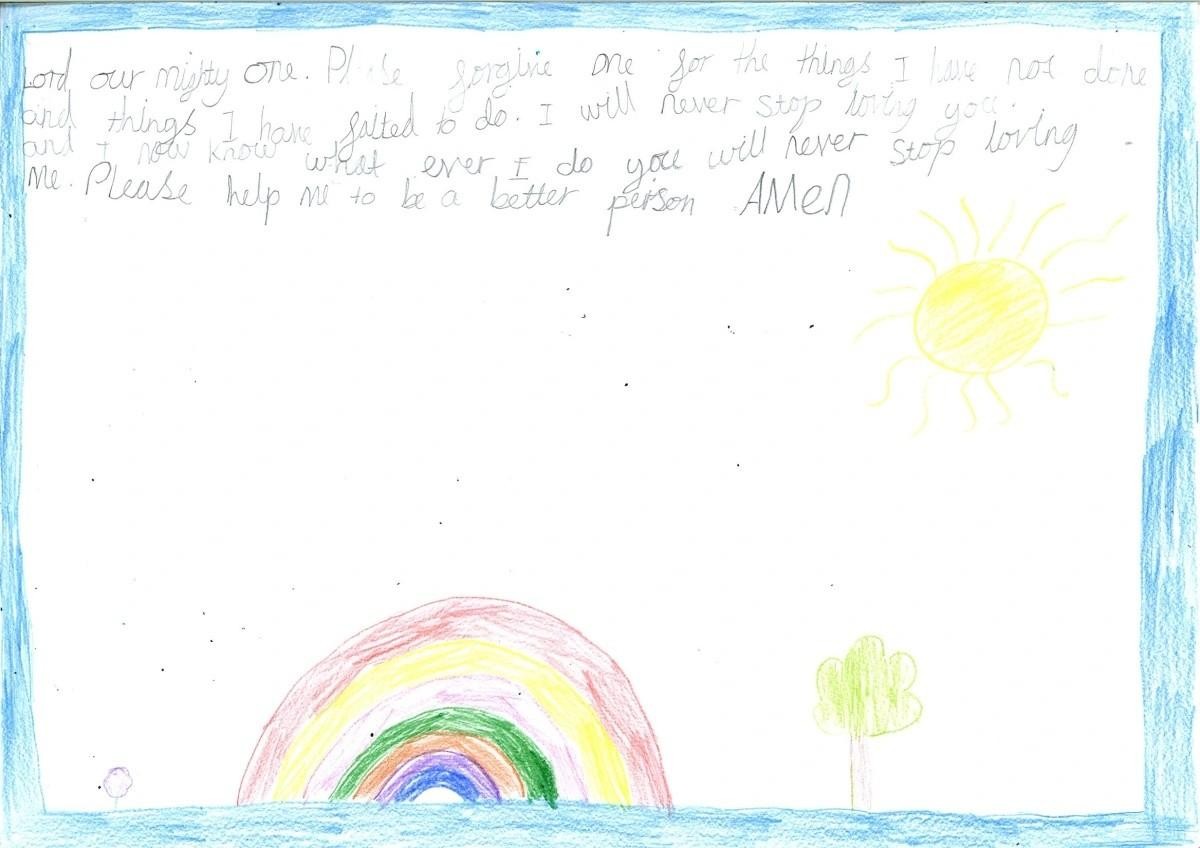 Lord our mighty one. Please forgive me for the things I have not done
and things I have failed to do. I will never stop loving you.
and I now know what ever I do you will never stop loving
me. Please help me to be a better person AMen